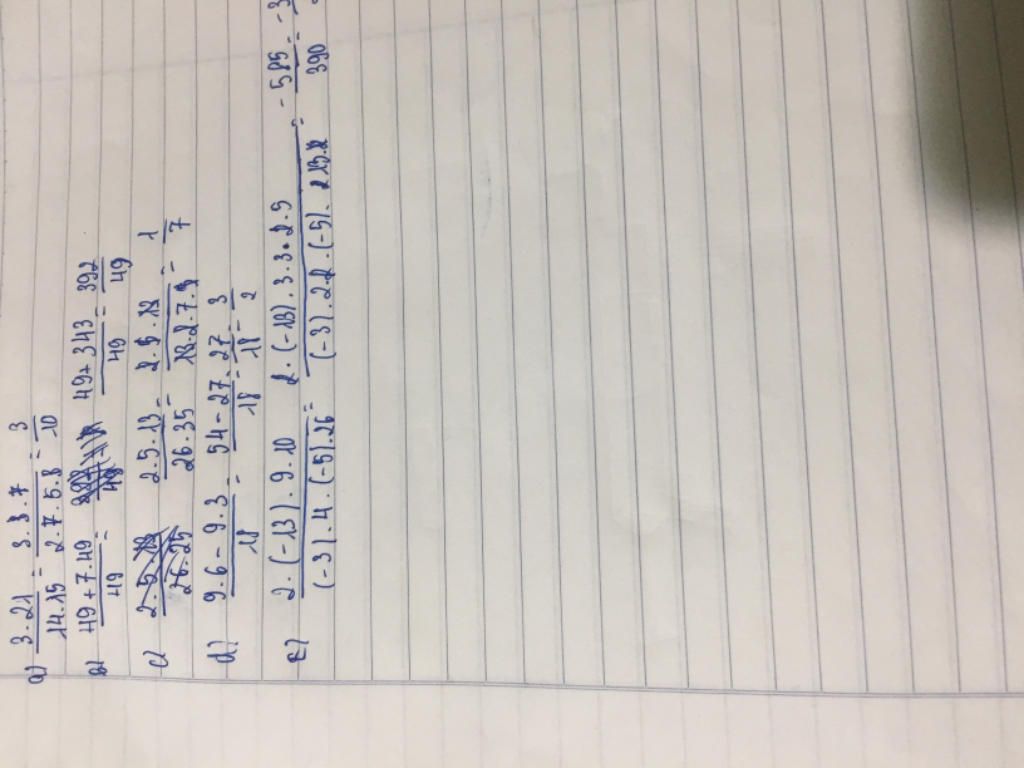 a) 3.21/14.15 = 3.3.7/2.7.5.3 = 3/10
b) 49 + 7.49/49 = 49 + 343/49 = 392/49
c) 2.5.13/26.35 = 2.5.13/13.2.7.5 = 1/7
d) 9.6 - 9.3/18 = 54 - 27/18 = 27/18 = 3/2
e) 2.(-13).9.10/(-3).4.(-5).26 = 2.(-13).3.3.2.5/(-3).2.2.(-5).2.13 = -585/390 = -3